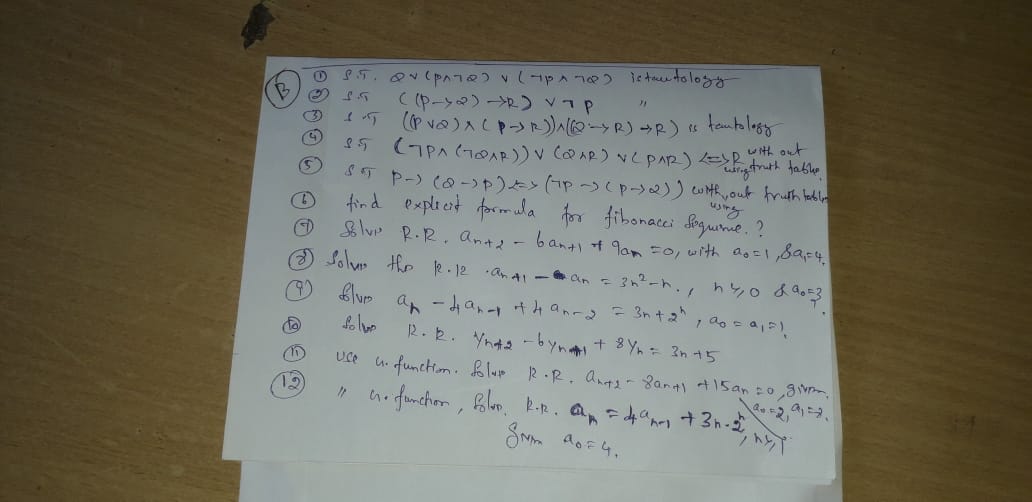 B ① S.T. Q∨(P∧¬Q)∨(¬P∧¬Q) is tautology
② S.T ((P→Q)→R)∨¬P "
③ S.T ((P∨Q)∧(P→R))∧((Q→R)→R) is tautology
④ S.T (¬P∧(¬Q∧R))∨(Q∧R)∨(P∧R)<=>R with out using truth table.
⑤ S.T P→(Q→P)<=>(¬P→(P→Q)) with out using truth table
⑥ find explicit formula for fibonacci Sequence.?
⑦ Solve R.R. an+2 - 6an+1 + 9an = 0, with a0=1, & a1=4.
⑧ Solve the R.R. an+1 - an = 3n² - n., n ≥ 0 & a0=3
⑨ Solve an - 4an-1 + 4an-2 = 3n+2ⁿ, a0 = a1 = 1.
⑩ Solve R.R. Yn+2 - 6Yn+1 + 8Yn = 3n+5
⑪ Use G. function. Solve R.R. an+2 - 8an+1 + 15an = 0, given a0=2, a1=
⑫ " G. function, Solve. R.R. an = 4an-1 + 3n.2ⁿ, n≥1
Given a0=4.